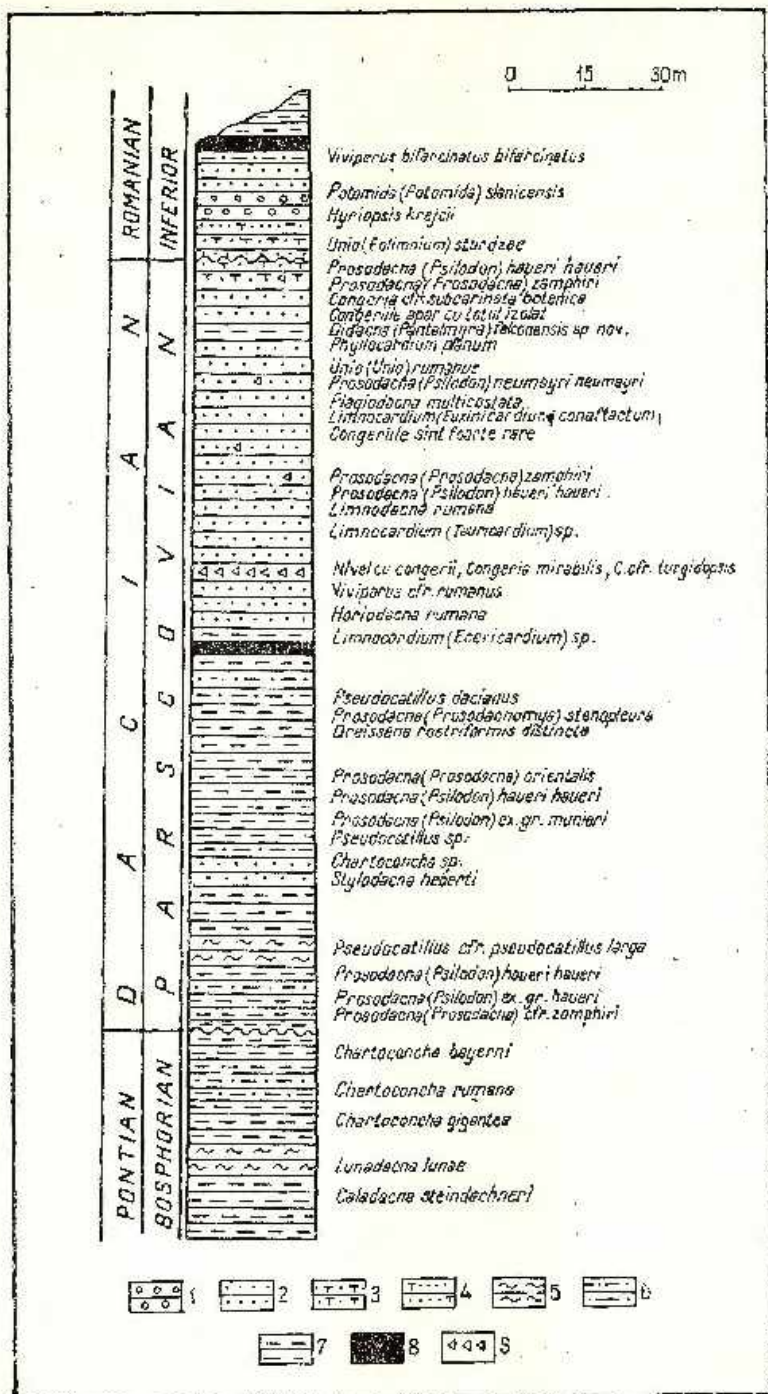 0 15 30m
ROMANIAN
INFERIOR
DACIAN
PARSCOVIAN
PONTIAN
BOSPHORIAN
Viviparus bifarcinatus bifarcinatus
Potomida (Potomida) slanicensis
Hyriopsis krejcii
Unio (Eolimnium) sturdzae
Prosodacna (Psilodon) haueri haueri
Prosodacna (Prosodacna) zamphiri
Congeria cfr. subcarinata botenica
Congeriile apar cu totul izolat
Didacna (Pantelmyra) sp. nov.
Phyllocardium planum
Unio (Unio) rumanus
Prosodacna (Psilodon) neumayri neumayri
Plagiodacna multicostata
Limnocardium (Euxinicardium)
Congeriile sint foarte rare
Prosodacna (Prosodacna) zamphiri
Prosodacna (Psilodon) haueri haueri
Limnodacna rumana
Limnocardium (Tauricardium) sp.
Nivel cu congerii, Congeria mirabilis, C. cfr. turgidopsis
Viviparus cfr. rumanus
Horiodacna rumana
Limnocardium (Ecericardium) sp.
Pseudocatillus dacianus
Prosodacna (Prosodacnomya) stenopleura
Dreissena rostriformis distincta
Prosodacna (Prosodacna) orientalis
Prosodacna (Psilodon) haueri haueri
Prosodacna (Psilodon) ex. gr. munieri
Pseudocatillus sp.
Chartoconcha sp.
Stylodacna heberti
Pseudocatillus cfr. pseudocatillus larga
Prosodacna (Psilodon) haueri haueri
Prosodacna (Psilodon) ex. gr. haueri
Prosodacna (Prosodacna) cfr. zamphiri
Chartoconcha bayerni
Chartoconcha rumana
Chartoconcha gigantea
Lunadacna lunae
Caladacna steindachneri
1 2 3 4 5 6
7 8 9